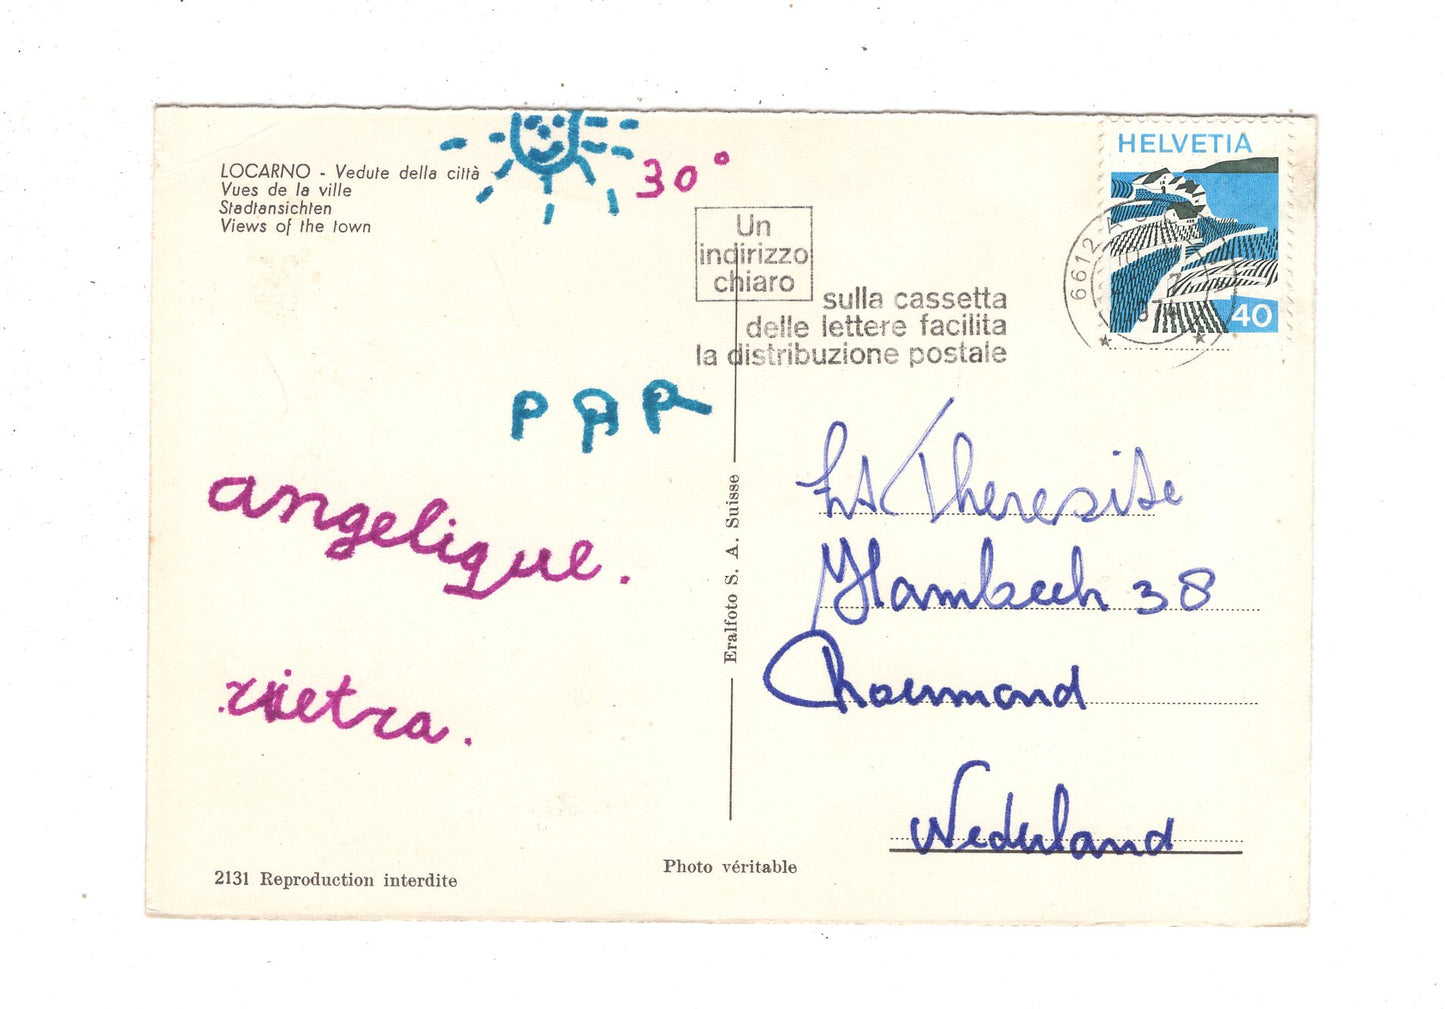 LOCARNO - Vedute della città
Vues de la ville
Stadtansichten
Views of the town
30°
HELVETIA
40
6612 ASCONA
Un
indirizzo
chiaro
sulla cassetta
delle lettere facilita
la distribuzione postale
PAP
angelique.
Eralfoto S. A. Suisse
Theresite
Hambeek 38
Roermond
Nederland
2131 Reproduction interdite
Photo véritable